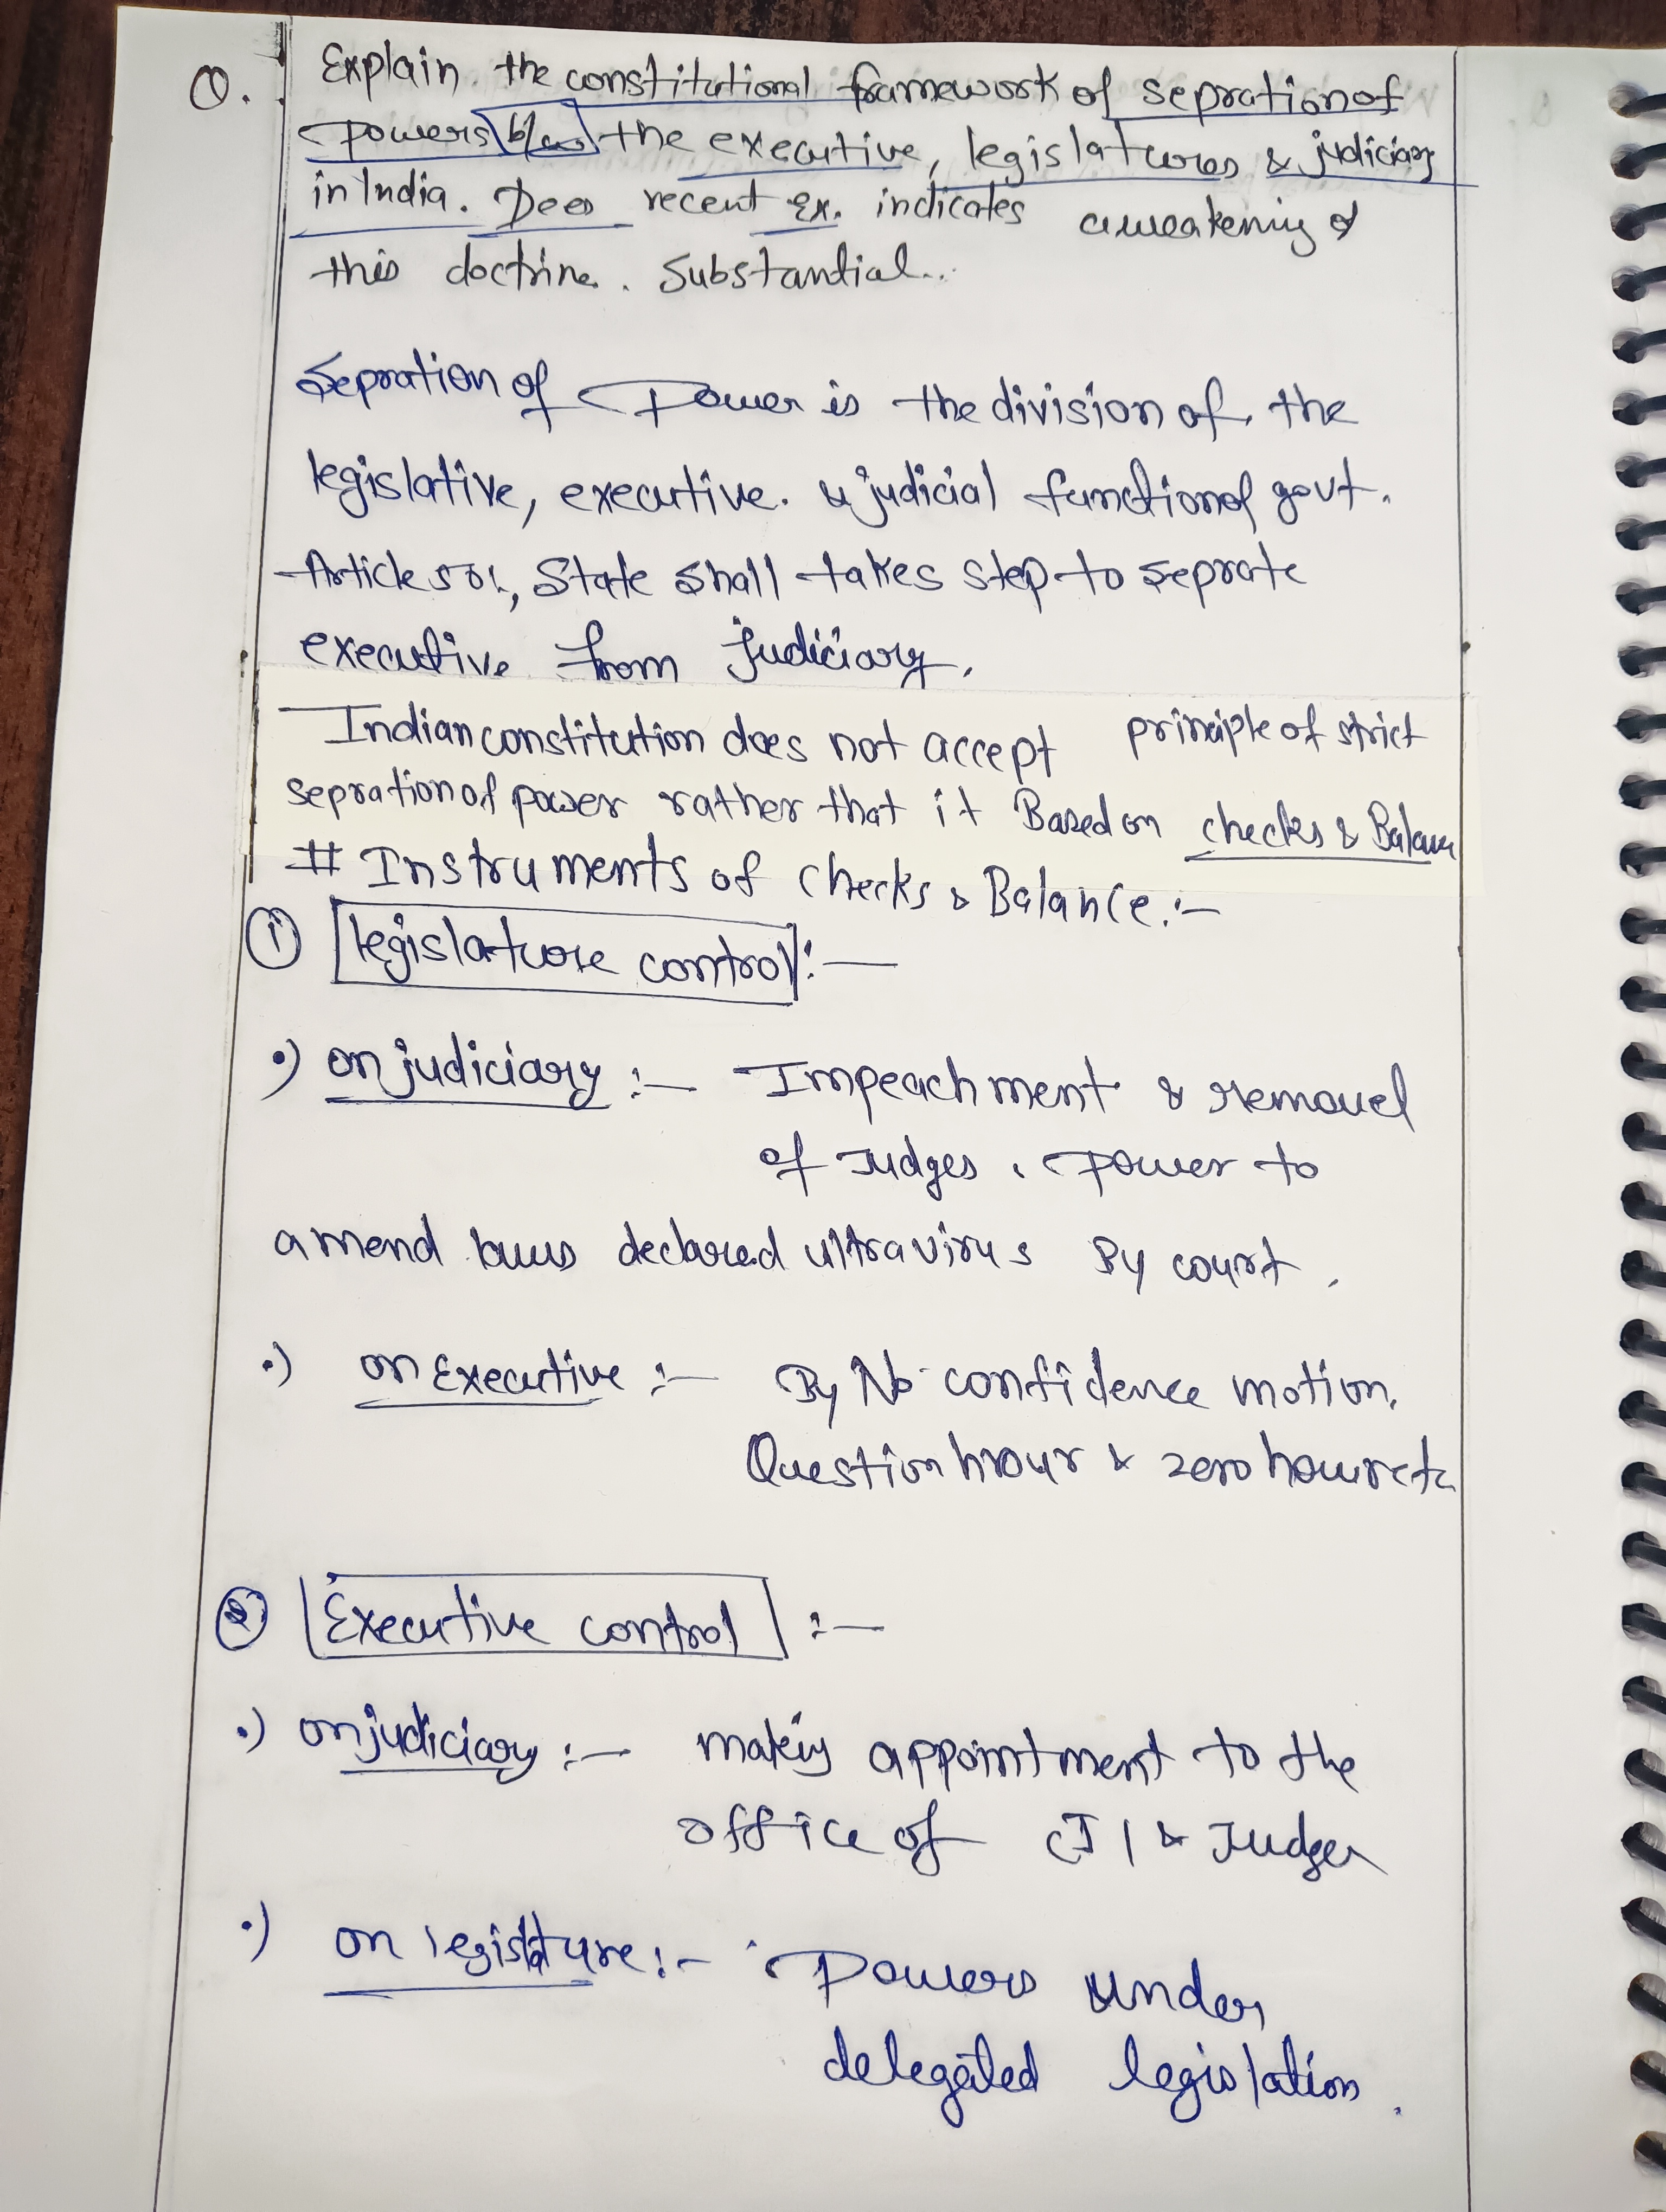 Q. Explain the constitutional framework of sepration of
powers b/w the executive, legislatures & judiciary
in India. Does recent ex. indicates a weakening of
this doctrine. Substantial...
Sepration of Power is the division of the
legislative, executive. & judicial function of govt.
Article 50, State shall takes step to seprate
executive from judiciary.
Indian constitution does not accept principle of strict
sepration of power rather that it Based on checks & Balance
# Instruments of checks & Balance :-
① legislature control :—
•) on judiciary :— Impeachment & removel
of Judges. Power to
amend laws declared ultravirus By court.
•) on Executive :— By No-confidence motion.
Question hour & zero hour etc
② Executive control :—
•) on judiciary :— making appointment to the
office of CJI & Judges
•) on legislature :- Powers under
delegated legislation.